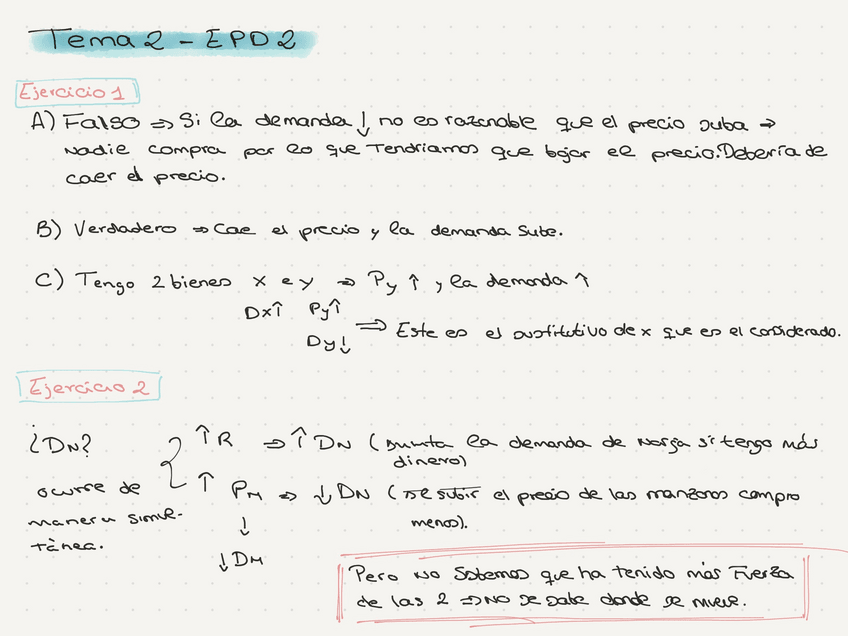 Tema 2 - EPD 2
Ejercicio 1
A) Falso => Si la demanda ↓ no es razonable que el precio suba →
Nadie compra por lo que Tendriamos que bajar el precio. Debería de
caer el precio.
B) Verdadero => Cae el precio y la demanda sube.
C) Tengo 2 bienes x e y => Py ↑, y la demanda ↑
Dx↑ Py↑
Dy↓ => Este es el sustitutivo de x que es el considerado.
Ejercicio 2
¿DN? ↑ R => ↑ DN ( la demanda de si tengo más
dinero)
ocurre de ↑ PM => ↓ DN ( subir el precio de las manzanas compro
manera simul- ↓ menos).
tànea. ↓ DM
Pero NO Sabemos que ha tenido más Fuerza
de las 2 => NO se sabe donde se mueve.